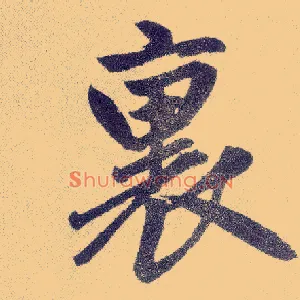 裏
Shufawang.CN